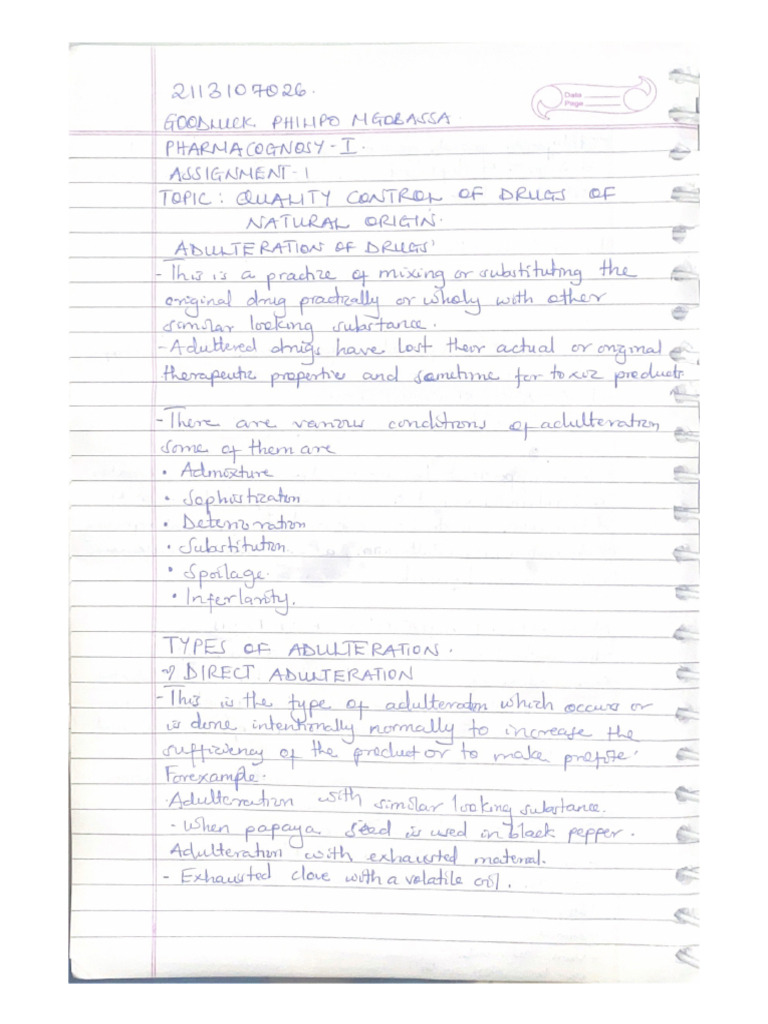 2113107026.
Date
Page
GOODLUCK PHILIPO MGOBASSA
PHARMACOGNOSY - I.
ASSIGNMENT - 1
TOPIC : QUALITY CONTROL OF DRUGS OF
NATURAL ORIGIN.
ADULTERATION OF DRUGS'
- This is a practize of mixing or substituting the
original drug practically or wholy with other
similar looking substance.
- Adultered drugs have lost their actual or original
therapeutic propertie and sometime for toxic products
- There are various conditions of adulteration
some of them are
• Admixture
• Sophistization
• Deterioration
• Substitution
• Spoilage.
• Inferlarity.
TYPES OF ADULTERATION.
DIRECT ADULTERATION
- This is the type of adulteration which occurs or
is done intentionally normally to increase the
suffiziency of the product or to make profite.
Forexample.
Adulteration with similar looking substance.
- When papaya seed is used in black pepper.
Adulteration with exhausted material.
- Exhausted clove with a volatile oil.